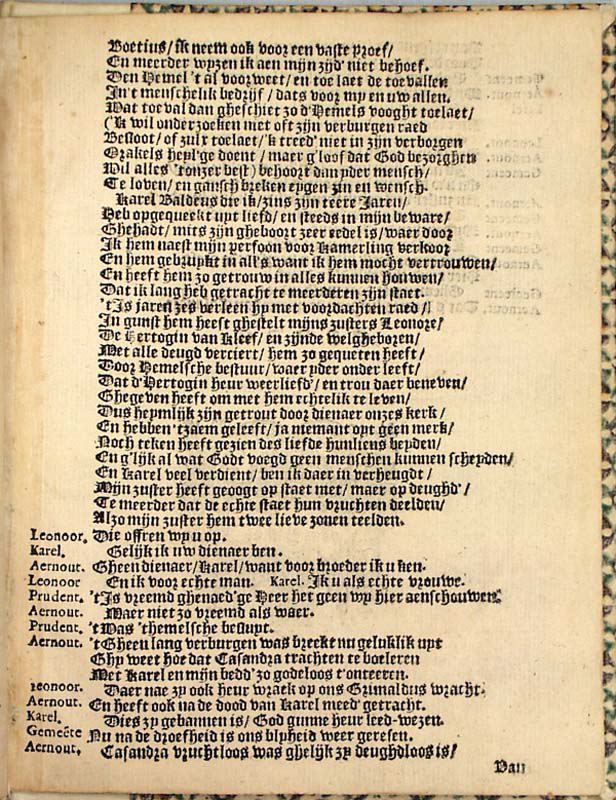 Boetius/ ik neem ook voor een vaste proef/
En meerder wyzen ik aen mijn zijd' niet behoef.
Den Hemel 't al voorweet/ en toe laet de toevallen
In 't menschelik bedrijf/ dats voor my en uw allen.
Wat toeval dan gheschiet zo d'Hemels vooght toelaet/
('k wil onderzoeken niet oft zijn verburgen raed
Besloot/ of zulx toelaet/ 'k treed' niet in zijn verborgen
Orakels heyl'ge doent/ maer g'loof dat God bezorghen
Wil alles 'tonzer best) behoort dan yder mensch/
Te loven/ en gansch breken eygen zin en wensch.
Karel Baldeus die ik/ zins zijn teere Jaren/
Heb opgequeekt upt liefd/ en steeds in mijn beware/
Ghehadt/ mits zijn gheboort zeer eedel is/ waer door
Ik hem naest mijn persoon voor Kamerling verkoor
En hem gebruykt in all's want ik hem mocht vertrouwen/
En heeft hem zo getrouw in alles kunnen houwen/
Dat ik lang heb getracht te meerderen zijn staet.
't Is jaren zes verleen hy met voordachten raed/
In gunst hem heeft ghestelt mijns zusters Leonore/
De Hertogin van Kleef/ en zijnde welgheboren/
Met alle deugd verciert/ hem zo gequeten heeft/
Door Hemelsche bestuur/ waer yder onder leeft/
Dat d'Hertogin heur weerliefd'/ en trou daer beneven/
Ghegeven heeft om met hem echtelik te leven/
Dus heymlyk zijn getrout door dienaer onzes kerk/
En hebben 'tzaem geleeft/ ja niemant opt geen merk/
Noch teken heeft gezien des liefde hunliens beyden/
En g'lijk al wat Godt voegd geen menschen kunnen scheyden/
En Karel veel verdient/ ben ik daer in verheugdt/
Mijn zuster heeft geoogt op staet met/ maer op deughd'/
Te meerder dat de echte staet hun vruchten deelden/
Alzo mijn zuster hem twee lieve zonen teelden.
Leonoor. Die offren wy u op.
Karel. Gelijk ik uw dienaer ben.
Aernout. Gheen dienaer/ Karel/ want voor broeder ik u ken.
Leonoor En ik voor echte man. Karel. Ik u als echte vrouwe.
Prudent. 't Is vreemd ghenaed'ge Heer het geen wy hier aenschouwen.
Aernout. Maer niet zo vreemd als waer.
Prudent. 't Was 'themelsche besluyt.
Aernout. 't Gheen lang verburgen was breckt nu geluklik uyt
Ghy weet hoe dat Casandra trachten te boeleren
Met Karel en mijn bedd' zo godeloos t'onteeren.
Leonoor. Daer nae zy ook heur wraek op ons Grimaldus wracht.
Aernout. En heeft ook na de dood van Karel meed' getracht.
Karel. Dies zy gebannen is/ God gunne heur leed-wezen.
Gemeēte Nu na de droefheid is ons blyheid weer geresen.
Aernout. Casandra vruchtloos was ghelijk zy deughdloos is/
Van